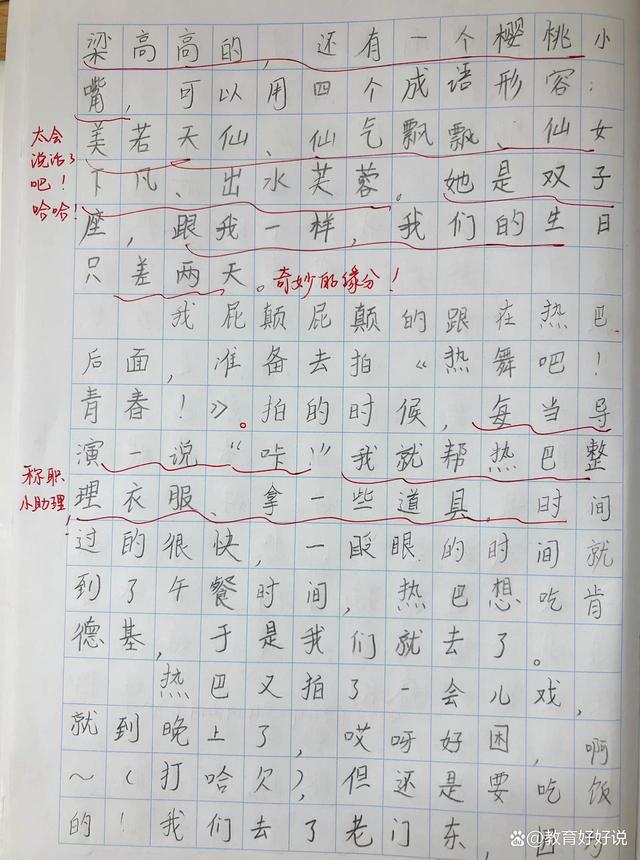 梁高高的，还有一个樱桃小
嘴，可以用四个成语形容：
美若天仙、仙气飘飘、仙女
下凡、出水芙蓉。她是双子
座，跟我一样，我们的生日
只差两天。
太会
说话了
吧！
哈哈！
奇妙的缘分！
我屁颠屁颠的跟在热巴
后面，准备去拍《热舞吧！
青春！》。拍的时候，每当导
演一说“咔！”我就帮热巴整
理衣服、拿一些道具。时间
称职
小助理！
过的很快，一眨眼的时间就
到了午餐时间，热巴想吃肯
德基，于是我们就去了。
热巴又拍了一会儿戏，
就到晚上了，哎呀好困，啊
～（打哈欠），但还是要吃饭
的！我们去了老门东，
@教育好好说